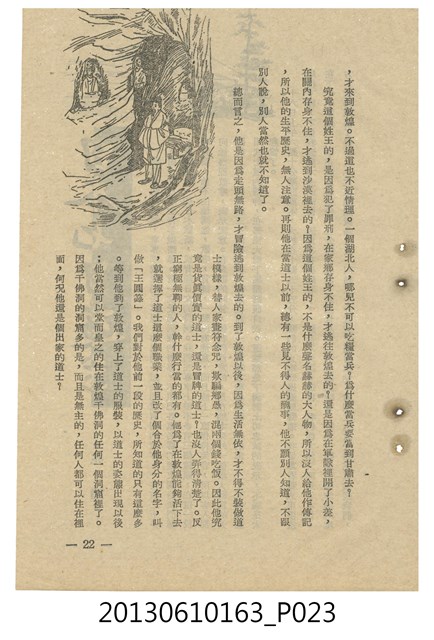 ，才來到敦煌。不過這也不近情理。一個湖北人，哪兒不可以吃糧當兵？爲什麼當兵要當到甘肅去？
究竟這個姓王的，是因爲犯了罪刑，在家鄉存身不住，才逃往敦煌去的？還是因爲在軍隊裡開了小差，
在關內存身不住，才逃到沙漠裡去的？因爲這個姓王的，不是什麼赫赫的大人物，所以沒人給他作傳記
，所以他的生平歷史，無人注意。再則他在當道士以前，總有一些見不得人的醜事，他不願別人知道，不跟
別人說，別人當然也就不知道了。
總而言之，他是因爲走頭無路，才冒險逃到敦煌去的。到了敦煌以後，因爲生活無依，才不得不裝做道
士模樣，替人家畫符念咒，欺騙鄉愚，混兩個錢吃飯。因此他究
竟是貨眞價實的道士，還是冒牌的道士？也沒人弄得清楚了。反
正窮極無聊的人，幹什麼行當的都有。他爲了在敦煌能夠活下去
，就選擇了道士這麼個職業，並且改了個合於他身分的名字，叫
做「王圓籙」。我們對於他前一段的歷史，所知道的只有這麼多
。等到他到了敦煌，穿上了道士的服裝，以道士的姿態出現以後
，他當然可以堂而皇之的住在敦煌千佛洞的任何一個洞窟裡了。
因爲千佛洞的洞窟多的是，而且是無主的，任何人都可以住在裡
面，何況他還是個出家的道士？
— 22 —
20130610163_P023